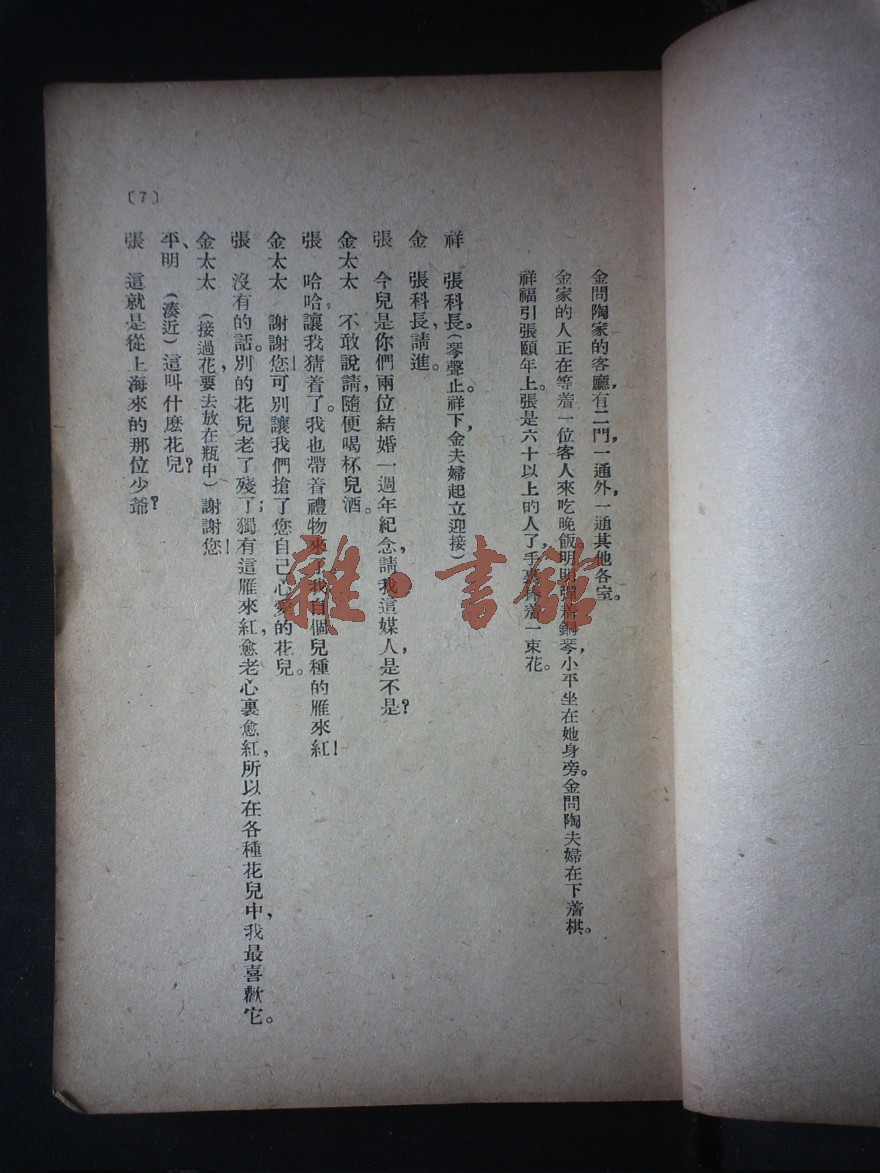 金問陶家的客廳，有二門，一通外，一通其他各室。
金家的人正在等着一位客人來吃晚飯。明明彈着鋼琴，小平坐在她身旁。金問陶夫婦在下着棋。
祥福引張頤年上。張是六十以上的人了，手裏捧着一束花。
祥　張科長。（琴聲止。祥下，金夫婦起立迎接）
金　張科長，請進。
張　今兒是你們兩位結婚一週年紀念，請我這媒人，是不是？
金太太　不敢說請，隨便喝杯兒酒。
張　哈哈，讓我猜着了。我也帶着禮物來了，我自個兒種的雁來紅！
金太太　謝謝您！可別讓我們搶了您自己心愛的花兒。
張　沒有的話。別的花兒老了殘了；獨有這雁來紅，愈老心裏愈紅，所以在各種花兒中，我最喜歡它。
金太太　（接過花，要去放在瓶中）謝謝您！
平、明　（湊近）這叫什麼花兒？
張　這就是從上海來的那位少爺？
〔7〕
雜·書館